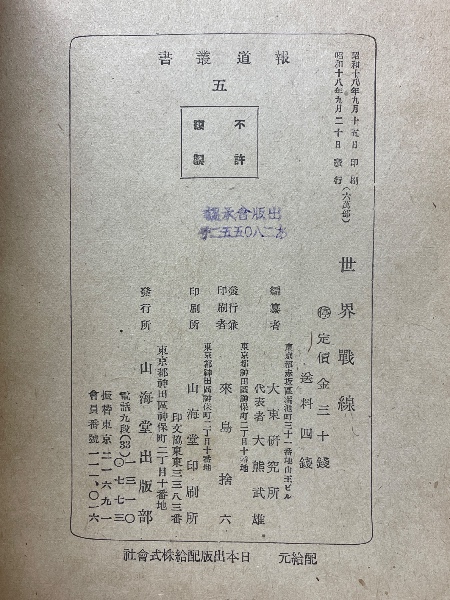 報道叢書
五
不許
複製
出版會承認
昭和十八年九月十五日 印刷
昭和十八年九月二十日 發行（六萬部）
世界戰線
㊡定價金三十錢
送料四錢
編纂者
東京都赤坂區溜池町三十一番地山王ビル
大東研究所
代表者 大熊武雄
發行兼
印刷者
東京都神田區神保町二丁目十番地
來島捨六
印刷所
東京都神田區神保町二丁目十番地
山海堂印刷所
印文協東東三三八三番
發行所
東京都神田區神保町二丁目十番地
山海堂出版部
電話九段(33) 一三一〇
〇七七三
振替東京二一六九一
會員番號一一一〇一六
配給元 日本出版配給株式會社